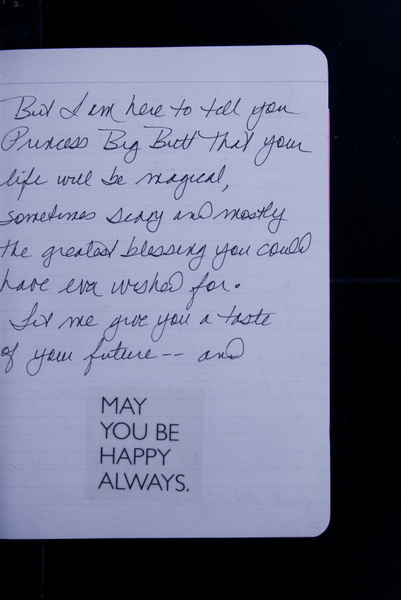 But I am here to tell you
Princess Big Butt that your
life will be magical,
sometimes scary and mostly
the greatest blessing you could
have ever wished for.
Let me give you a taste
of your future -- and
MAY
YOU BE
HAPPY
ALWAYS.